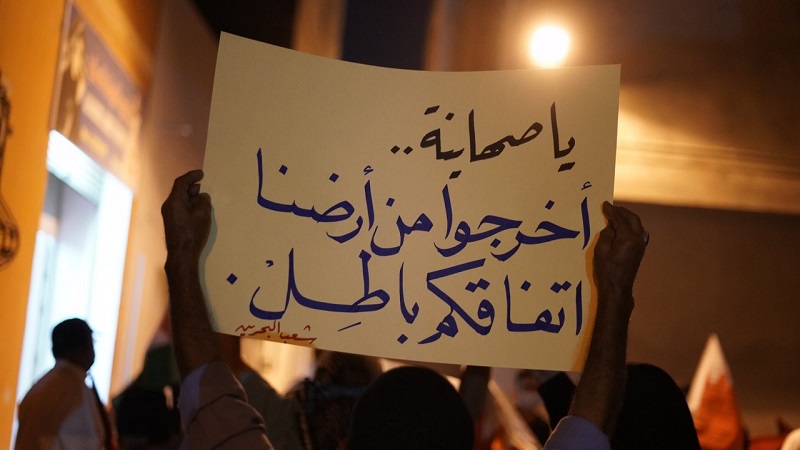 يا صهاينة..
أخرجوا من أرضنا
اتفاقكم باطِلْ.
شعب البحرين